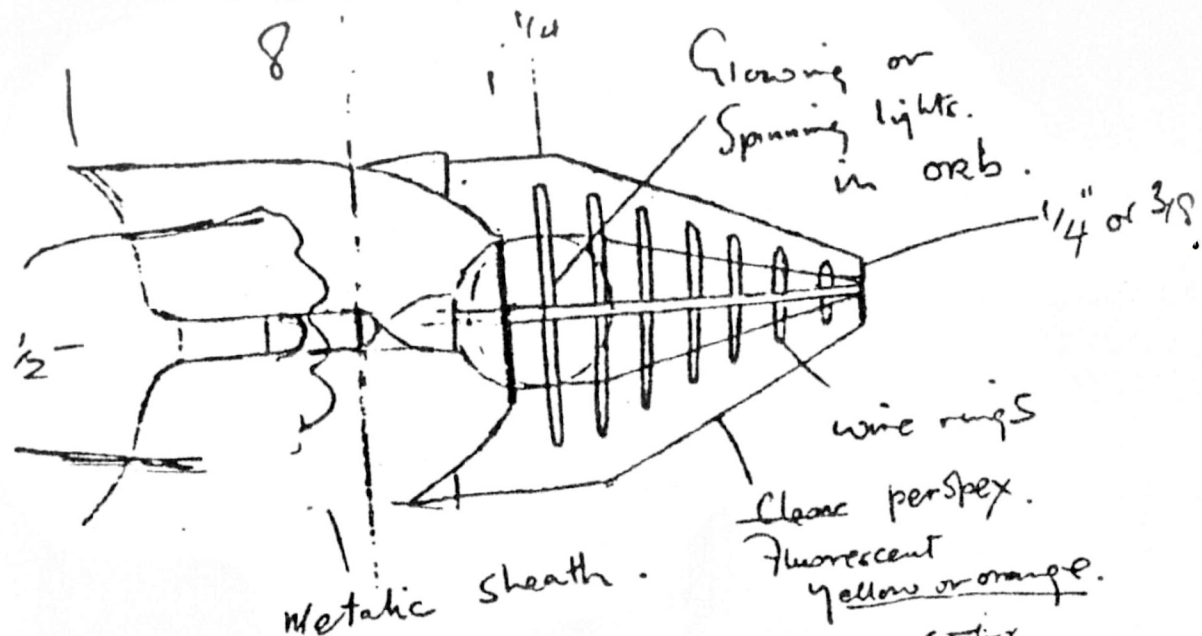 8
1 1/4
Glowing or
Spinning lights.
in orb.
1/4" or 3/8
1/2
wire rings
Clear perspex.
Fluorescent
yellow or orange.
Metalic sheath.